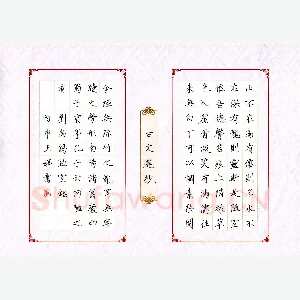 山不在高有僊則名水不
在深有龍則靈斯是陋室
惟吾德馨苔痕上階綠草
色入簾青談笑有鴻儒往
來無白丁可以調素琴閱
古文選抄
金經無絲竹之亂耳無案
牘之勞形南陽諸葛廬西
蜀子雲亭孔子云何陋之
有
劉禹錫陋室銘